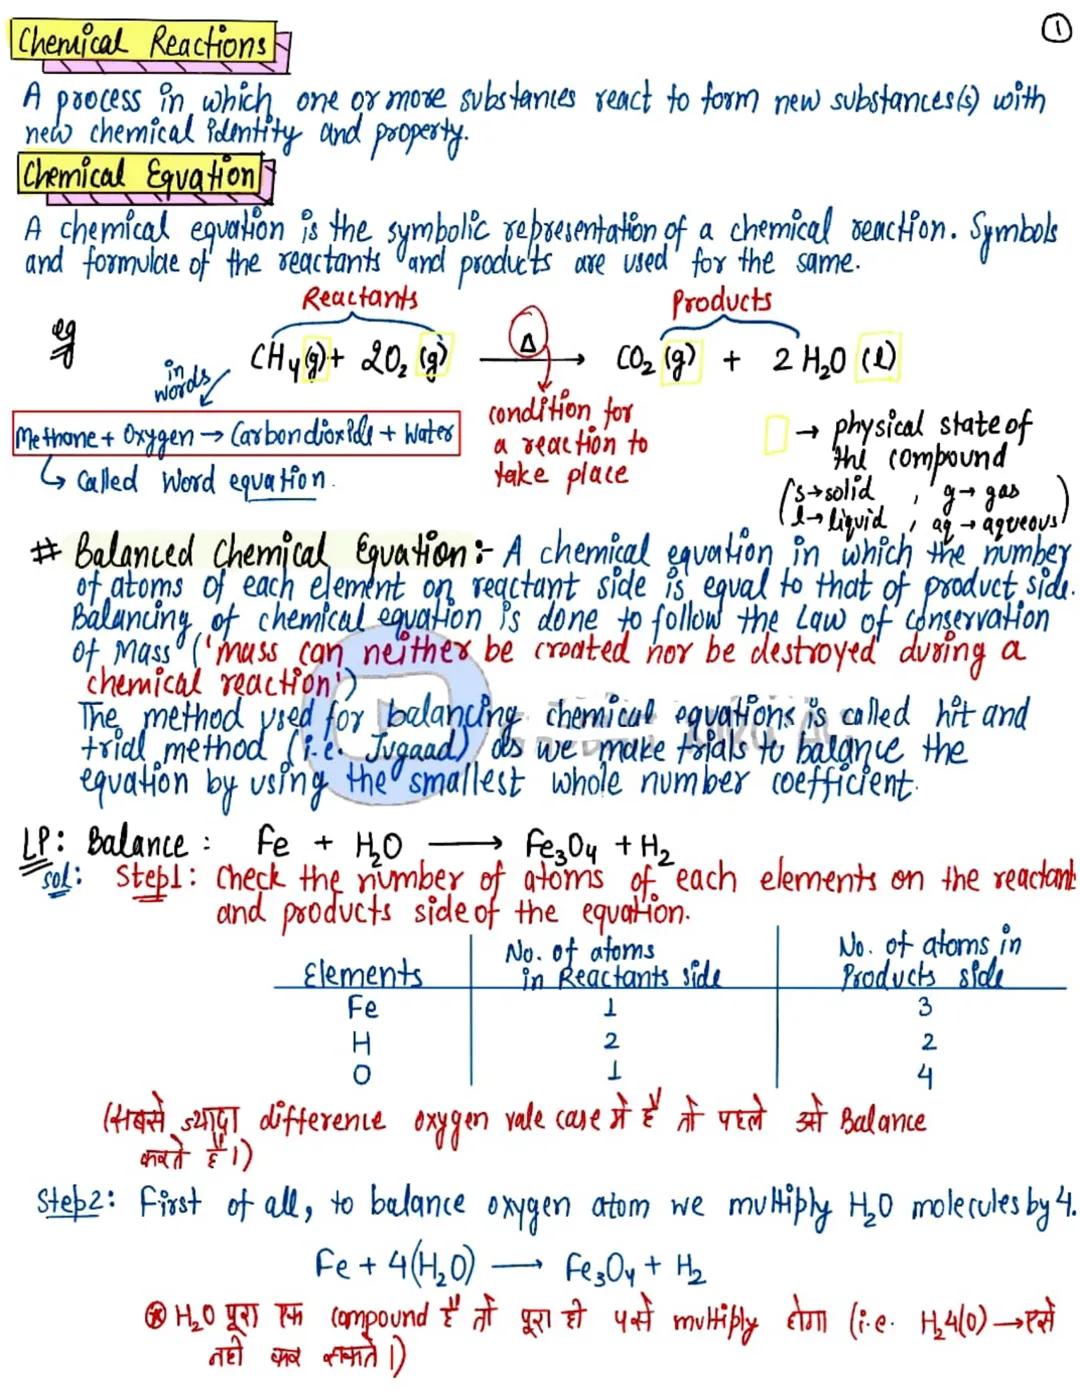 ①
Chemical Reactions
A process in which one or more substances react to form new substances(s) with
new chemical identity and property.
Chemical Equation
A chemical equation is the symbolic representation of a chemical reaction. Symbols
and formulae of the reactants and products are used for the same.
Reactants
Products
eg
CH₄(g) + 2O₂(g) —Δ→ CO₂(g) + 2H₂O(l)
in words
Methane + Oxygen → Carbondioxide + Water
↳ Called Word equation.
condition for
a reaction to
take place
→ physical state of
the compound
(s→solid, g→gas
l→liquid, aq→aqueous)
# Balanced Chemical Equation:- A chemical equation in which the number
of atoms of each element on reactant side is equal to that of product side.
Balancing of chemical equation is done to follow the Law of Conservation
of Mass ('mass can neither be created nor be destroyed during a
chemical reaction')
The method used for balancing chemical equations is called hit and
trial method (i.e. Jugaad) as we make trials to balance the
equation by using the smallest whole number coefficient.
LP: Balance: Fe + H₂O → Fe₃O₄ + H₂
Sol: Step1: Check the number of atoms of each elements on the reactant
and products side of the equation.
Elements | No. of atoms in Reactants side | No. of atoms in Products side
Fe 1 3
H 2 2
O 1 4
(सबसे ज्यादा difference oxygen vale case में है तो पहले उसे Balance
करते हैं।)
Step2: First of all, to balance oxygen atom we multiply H₂O molecules by 4.
Fe + 4(H₂O) → Fe₃O₄ + H₂
⊛ H₂O पूरा एक compound है तो पूरा ही 4 से multiply होगा (i.e. H₂4(O) → ऐसे
नही कर सकते।)